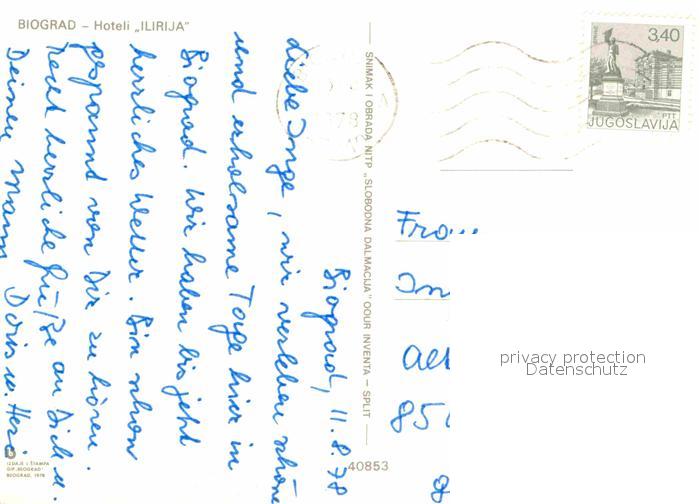 BIOGRAD – Hoteli „ILIRIJA”
Biograd, 11.8.78
Liebe Inge, wir verleben schöne
und erholsame Tage hier in
Biograd. Wir haben bis jetzt
herrliches Wetter. Bin schon
gespannt von Dir zu hören.
Recht herrliche Grüße an Dich u.
Deinen Mann Doris u.
SNIMAK I OBRADA NITP „SLOBODNA DALMACIJA” OOUR INVENTA — SPLIT
3,40
PTT
JUGOSLAVIJA
Fra...
In
85
privacy protection
Datenschutz
40853
IZDAJE I ŠTAMPA
GIP „BEOGRAD”
BEOGRAD, 1978